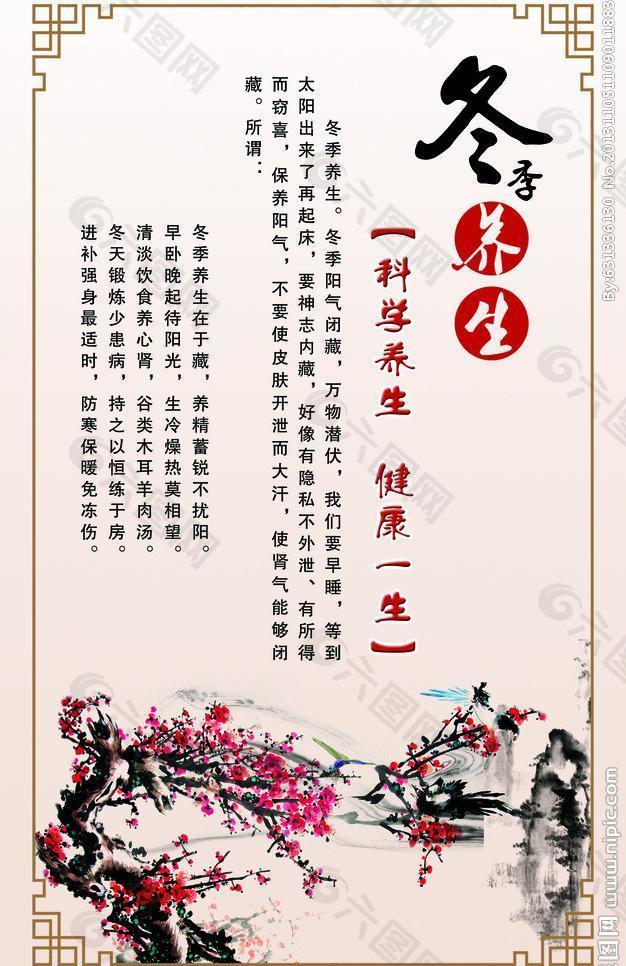 冬季
养
生
【科学养生 健康一生】
冬季养生。冬季阳气闭藏，万物潜伏，我们要早睡，等到
太阳出来了再起床，要神志内藏，好像有隐私不外泄、有所得
而窃喜，保养阳气，不要使皮肤开泄而大汗，使肾气能够闭
藏。所谓：
冬季养生在于藏，养精蓄锐不扰阳。
早卧晚起待阳光，生冷燥热莫相望。
清淡饮食养心肾，谷类木耳羊肉汤。
冬天锻炼少患病，持之以恒练于房。
进补强身最适时，防寒保暖免冻伤。
By:631336130 No.20131105110901​1883
六图网
www.nipic.com